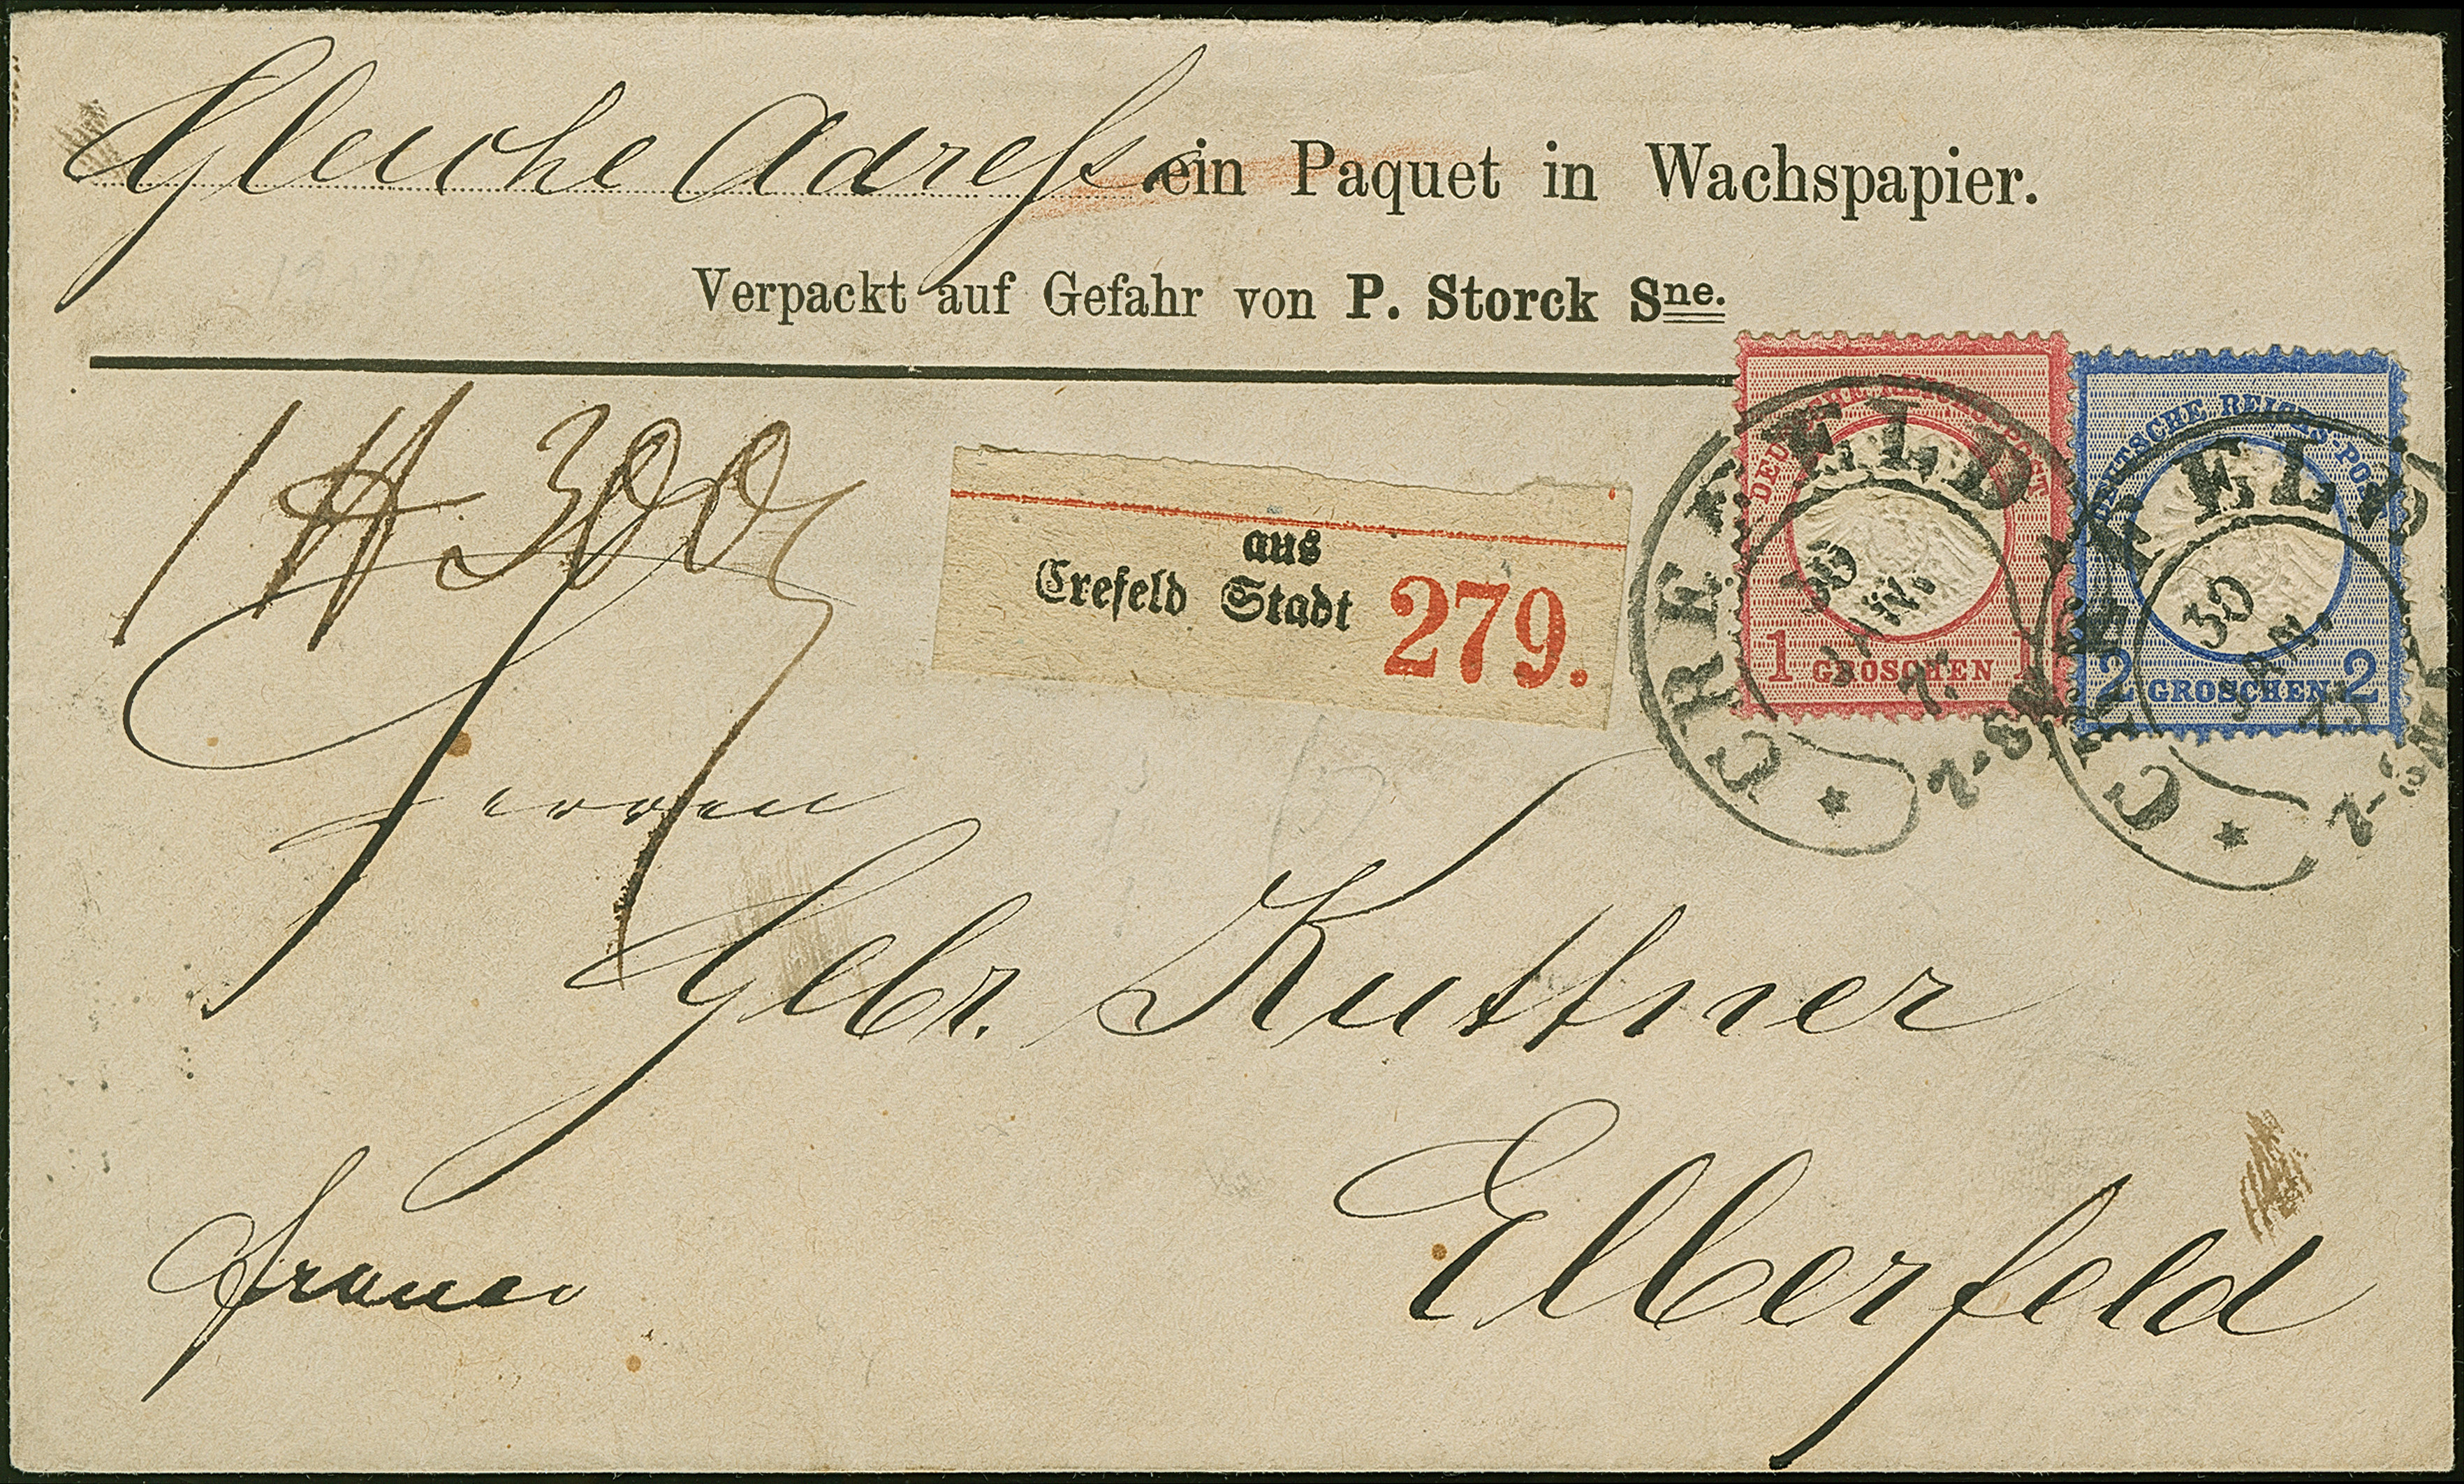 Gleiche Adresse ein Paquet in Wachspapier.
Verpackt auf Gefahr von P. Storck Sne.
aus
Crefeld Stadt 279.
DEUTSCHE REICHS-POST
1 GROSCHEN 1
DEUTSCHE REICHS-POST
2 GROSCHEN 2
CREFELD
30
JAN.
7-8N
CREFELD
30
JAN.
73
7-8N
Herren
Gebr. Kuttner
Elberfeld
franco